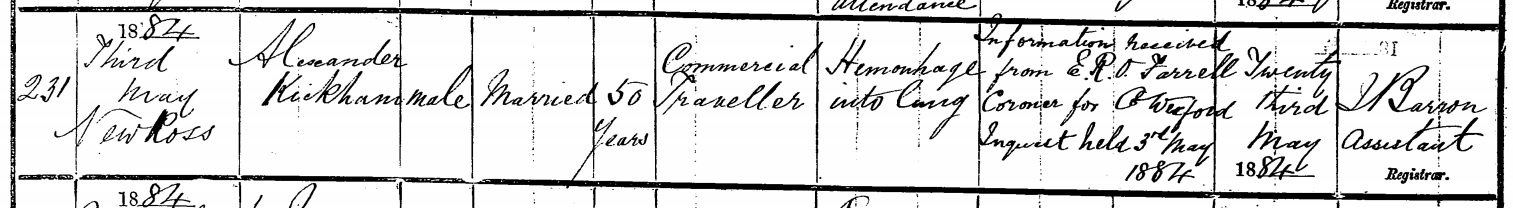 attendance
Registrar.
231
1884
Third
May
New Ross
Alexander
Kickham
male
Married
50
Years
Commercial
Traveller
Hemorrhage
into lung
Information received
from E.R. O. Farrell
Coroner for Co Wexford
Inquest held 3rd May
1884
Twenty
third
May
1884
J Barron
Assistant
Registrar.
1884